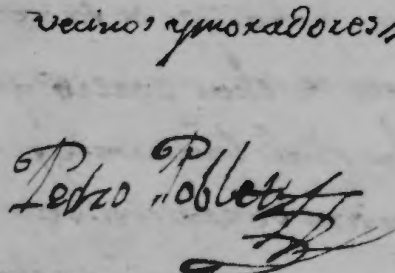 vecinos y moradores
Pedro Poblete